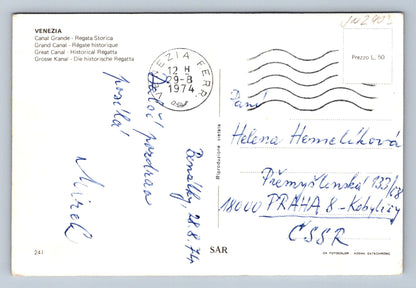 VENEZIA
Canal Grande - Regata Storica
Grand Canal - Régate historique
Great Canal - Historical Regatta
Grosse Kanal - Die historische Regatta
VENEZIA FERR
12 H
29-8
1974
Prezzo L. 50
Benátky, 28.8.74
pozdrav
posílá
Mirek
Paní
Helena Hemelíková
Přemyšlenská 133/08
18000 PRAHA 8 - Kobylisy
ČSSR
241
SAR
Riproduzione vietata